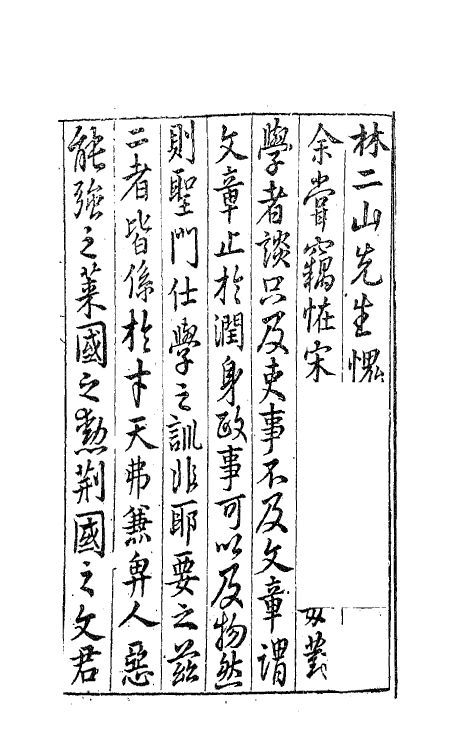 林二山先生愧
余嘗竊恠宋
學者談只及吏事不及文章謂
文章止於潤身政事可以及物然
則聖門仕學之訓非耶要之茲
二者皆係於才天弗兼畀人惡
能強之萊國之勲荆國之文君